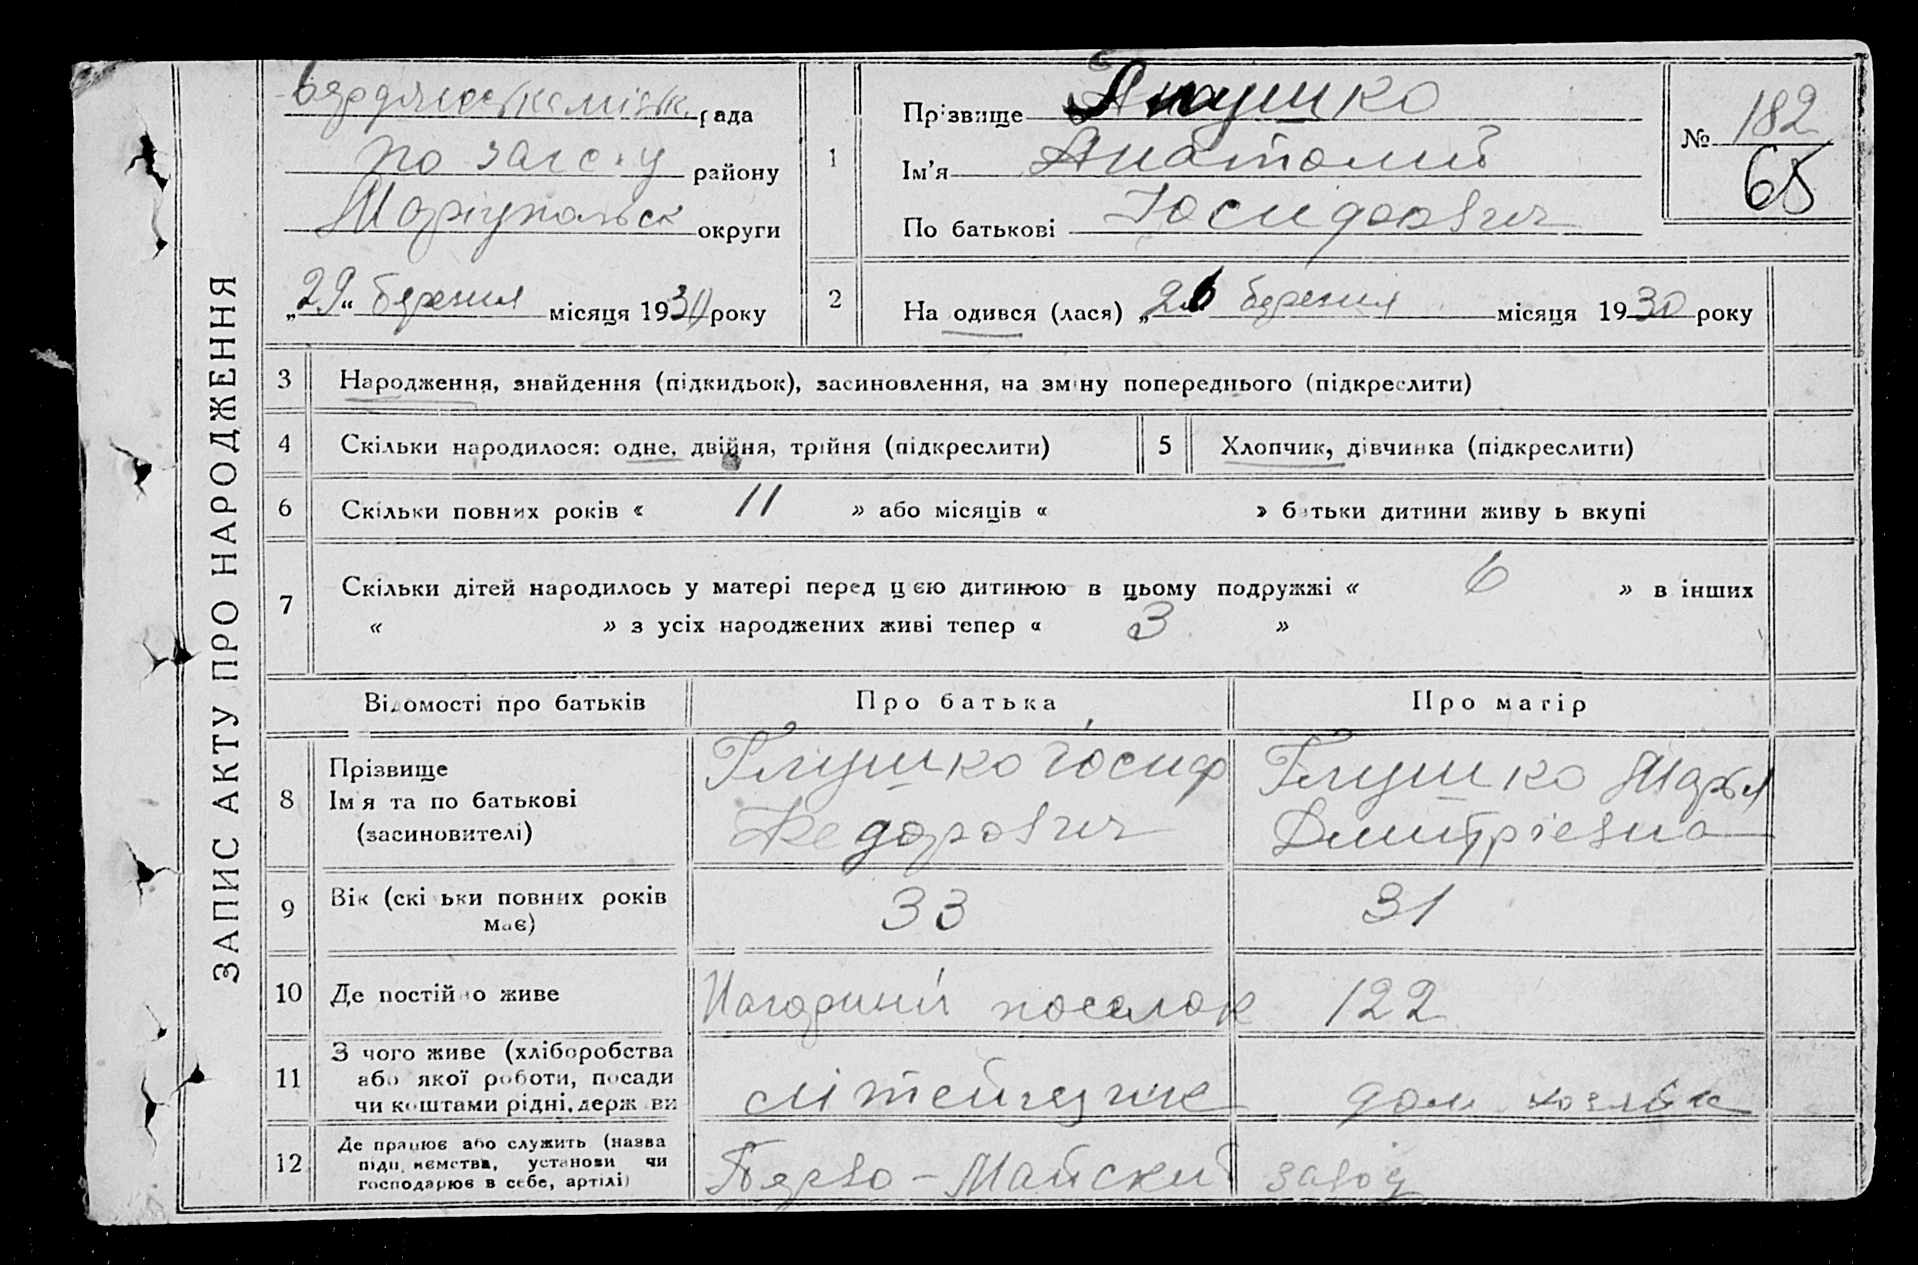 ЗАПИС АКТУ ПРО НАРОДЖЕННЯ
Бердянська міськ. рада
по загсу району
Маріупольськ округи
„29“ березня місяця 1930 року
1
Прізвище
Ім’я Анатолий
По батькові Іосифович
№ 182
65
2
На одився (лася) „26 березня місяця 1930 року
3 Народження, знайдення (підкидьок), засиновлення, на зміну попереднього (підкреслити)
4 Скільки народилося: одне, двійня, трійня (підкреслити)
5 Хлопчик, дівчинка (підкреслити)
6 Скільки повних років « 11 » або місяців « » батьки дитини живу ь вкупі
7 Скільки дітей народилось у матері перед цією дитиною в цьому подружжі « 6 » в інших
« » з усіх народжених живі тепер « 3 »
Відомості про батьків Про батька Про матір
8 Прізвище
Імя та по батькові
(засиновителі)
Глушко Іосиф
Федорович
Глушко Марья
Дмитріевна
9 Вік (скі ьки повних років
має)
33
31
10 Де постійно живе
Нагорний поселок 122
11 З чого живе (хліборобства
або якої роботи, посади
чи коштами рідні, держ ви
літейщик
дом хозяйка
12 Де працює або служить (назва
підп иємства, установи чи
господарює в себе, артілі)
Перво-Майский завод